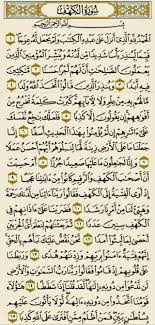 سُورَةُ الكَهْفِ
بِسْمِ اللَّهِ الرَّحْمَٰنِ الرَّحِيمِ
الْحَمْدُ لِلَّهِ الَّذِي أَنزَلَ عَلَىٰ عَبْدِهِ الْكِتَٰبَ وَلَمْ يَجْعَل لَّهُ عِوَجَا ۜ ١
قَيِّمًا لِّيُنذِرَ بَأْسًا شَدِيدًا مِّن لَّدُنْهُ وَيُبَشِّرَ الْمُؤْمِنِينَ الَّذِينَ
يَعْمَلُونَ الصَّٰلِحَٰتِ أَنَّ لَهُمْ أَجْرًا حَسَنًا ٢ مَّٰكِثِينَ
فِيهِ أَبَدًا ٣ وَيُنذِرَ الَّذِينَ قَالُوا اتَّخَذَ اللَّهُ وَلَدًا ٤
مَّا لَهُم بِهِ مِنْ عِلْمٍ وَلَا لِءَابَائِهِمْ كَبُرَتْ كَلِمَةً تَخْرُجُ مِنْ
أَفْوَٰهِهِمْ إِن يَقُولُونَ إِلَّا كَذِبًا ٥ فَلَعَلَّكَ بَٰخِعٌ نَّفْسَكَ
عَلَىٰ ءَاثَٰرِهِمْ إِن لَّمْ يُؤْمِنُوا بِهَٰذَا الْحَدِيثِ أَسَفًا ٦ إِنَّا جَعَلْنَا
مَا عَلَى الْأَرْضِ زِينَةً لَّهَا لِنَبْلُوَهُمْ أَيُّهُمْ أَحْسَنُ عَمَلًا ٧
وَإِنَّا لَجَٰعِلُونَ مَا عَلَيْهَا صَعِيدًا جُرُزًا ٨ أَمْ حَسِبْتَ
أَنَّ أَصْحَٰبَ الْكَهْفِ وَالرَّقِيمِ كَانُوا مِنْ ءَايَٰتِنَا عَجَبًا ٩
إِذْ أَوَى الْفِتْيَةُ إِلَى الْكَهْفِ فَقَالُوا رَبَّنَا ءَاتِنَا مِن لَّدُنكَ رَحْمَةً
وَهَيِّئْ لَنَا مِنْ أَمْرِنَا رَشَدًا ١٠ فَضَرَبْنَا عَلَىٰ ءَاذَانِهِمْ فِي
الْكَهْفِ سِنِينَ عَدَدًا ١١ ثُمَّ بَعَثْنَٰهُمْ لِنَعْلَمَ أَيُّ الْحِزْبَيْنِ أَحْصَىٰ
لِمَا لَبِثُوا أَمَدًا ١٢ نَّحْنُ نَقُصُّ عَلَيْكَ نَبَأَهُم بِالْحَقِّ
إِنَّهُمْ فِتْيَةٌ ءَامَنُوا بِرَبِّهِمْ وَزِدْنَٰهُمْ هُدًى ١٣ وَرَبَطْنَا
عَلَىٰ قُلُوبِهِمْ إِذْ قَامُوا فَقَالُوا رَبُّنَا رَبُّ السَّمَٰوَٰتِ وَالْأَرْضِ
لَن نَّدْعُوَا مِن دُونِهِ إِلَٰهًا لَّقَدْ قُلْنَا إِذًا شَطَطًا ١٤
هَٰؤُلَاءِ قَوْمُنَا اتَّخَذُوا مِن دُونِهِ ءَالِهَةً لَّوْلَا يَأْتُونَ عَلَيْهِم
بِسُلْطَٰنٍ بَيِّنٍ فَمَنْ أَظْلَمُ مِمَّنِ افْتَرَىٰ عَلَى اللَّهِ كَذِبًا ١٥